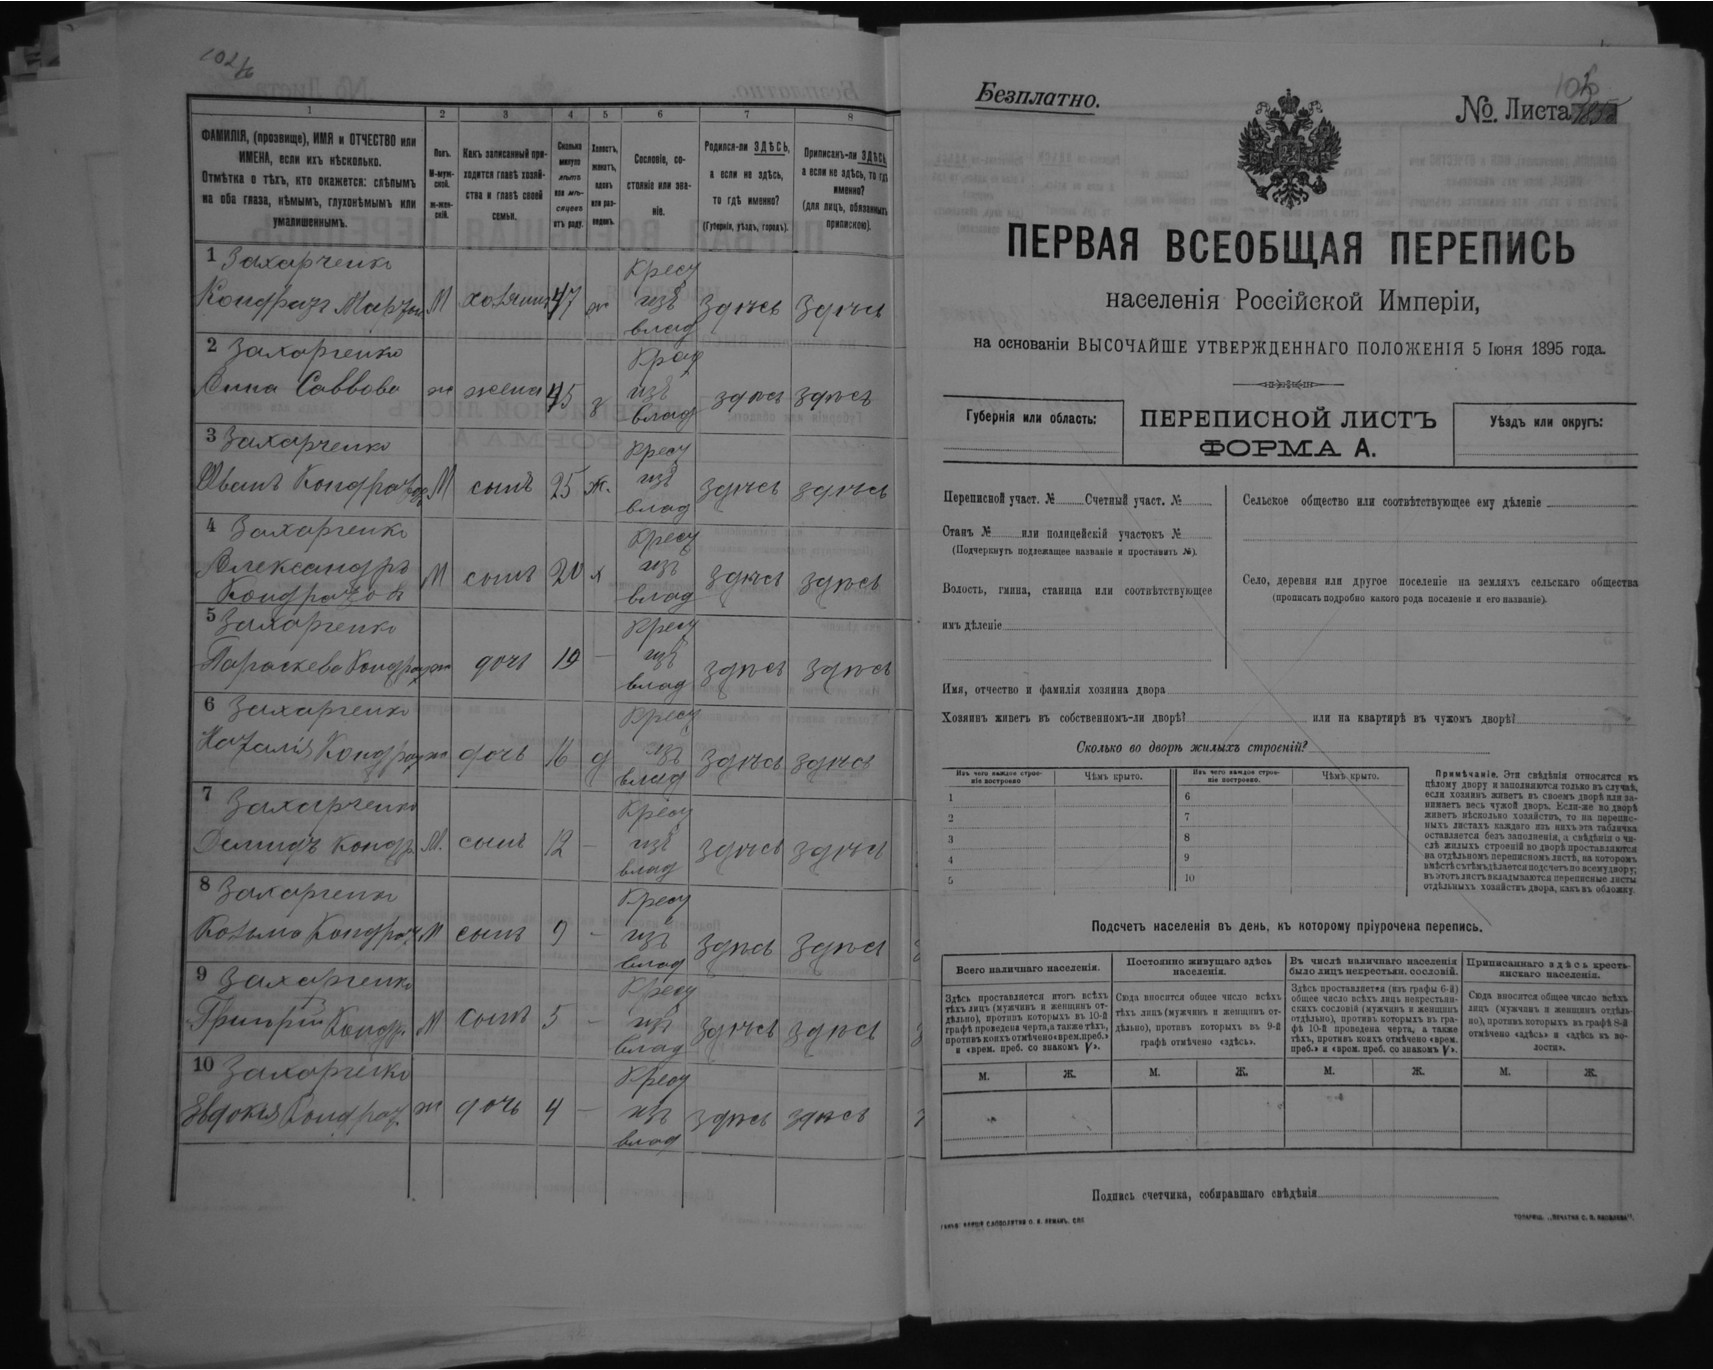 1
2
3
4
5
6
7
8
ФАМИЛІЯ, (прозвище), ИМЯ и ОТЧЕСТВО или
ИМЕНА, если ихъ нѣсколько.
Отмѣтка о тѣхъ, кто окажется: слѣпымъ
на оба глаза, нѣмымъ, глухонѣмымъ или
умалишеннымъ.
Полъ.
М-муж-
ской.
ж-жен-
скій.
Какъ записанный при-
ходится главѣ хозяй-
ства и главѣ своей
семьи.
Сколько
минуло
лѣтъ
или мѣ-
сяцевъ
отъ роду.
Холостъ,
женатъ,
вдовъ
или раз-
веденъ.
Сословіе, со-
стояніе или зва-
ніе.
Родился-ли ЗДѢСЬ,
а если не здѣсь,
то гдѣ именно?
(Губернія, уѣздъ, городъ).
Приписанъ-ли ЗДѢСЬ,
а если не здѣсь, то гдѣ
именно?
(для лицъ, обязанныхъ
припискою).
1 Захарченко
Кондратъ Март М хозяинъ 47 ж Крест изъ влад Здѣсь Здѣсь
2 Захарченко
Анна Саввова ж жена 45 з Крест изъ влад здѣсь здѣсь
3 Захарченко
Иванъ Кондратов М сынъ 25 ж. Крест изъ влад здѣсь здѣсь
4 Захарченко
Александръ
Кондратов М сынъ 20 х Крест изъ влад здѣсь здѣсь
5 Захарченко
Параскева Кондрат ж дочь 19 — Крест изъ влад здѣсь здѣсь
6 Захарченко
Наталія Кондрат ж дочь 16 д Крест изъ влад здѣсь здѣсь
7 Захарченко
Демидъ Кондр М. сынъ 12 — Крест изъ влад здѣсь здѣсь
8 Захарченко
Козьма Кондрат М сынъ 9 — Крест изъ влад здѣсь здѣсь
9 Захарченко
Григорій Кондр. М сынъ 5 — Крест изъ влад здѣсь здѣсь
10 Захарченко
Евдокія Кондрат. ж дочь 4 — Крест изъ влад здѣсь здѣсь
Безплатно.
№ Листа
ПЕРВАЯ ВСЕОБЩАЯ ПЕРЕПИСЬ
населенія Россійской Имперіи,
на основаніи ВЫСОЧАЙШЕ УТВЕРЖДЕННАГО ПОЛОЖЕНІЯ 5 Іюня 1895 года.
Губернія или область:
ПЕРЕПИСНОЙ ЛИСТЪ
ФОРМА А.
Уѣздъ или округъ:
Переписной участ. № Счетный участ. №
Станъ № или полицейскій участокъ №
(Подчеркнуть подлежащее названіе и проставить №).
Волость, гмина, станица или соотвѣтствующее
имъ дѣленіе
Сельское общество или соотвѣтствующее ему дѣленіе
Село, деревня или другое поселеніе на земляхъ сельскаго общества
(прописать подробно какого рода поселеніе и его названіе).
Имя, отчество и фамилія хозяина двора
Хозяинъ живетъ въ собственномъ-ли дворѣ? или на квартирѣ въ чужомъ дворѣ?
Сколько во дворѣ жилыхъ строеній?
Изъ чего каждое строе-
ніе построено
Чѣмъ крыто.
Изъ чего каждое строе-
ніе построено.
Чѣмъ крыто.
1
2
3
4
5
6
7
8
9
10
Примѣчаніе. Эти свѣдѣнія относятся къ
цѣлому двору и заполняются только въ случаѣ,
если хозяинъ живетъ въ своемъ дворѣ или за-
нимаетъ весь чужой дворъ. Если-же во дворѣ
живетъ нѣсколько хозяйствъ, то на перепис-
ныхъ листахъ каждаго изъ нихъ эта табличка
оставляется безъ заполненія, а свѣдѣнія о чи-
слѣ жилыхъ строеній во дворѣ проставляются
на отдѣльномъ переписномъ листѣ, на которомъ
вмѣстѣ съ тѣмъ дѣлается подсчетъ по всему двору;
въ этотъ листъ вкладываются переписные листы
отдѣльныхъ хозяйствъ двора, какъ въ обложку.
Подсчетъ населенія въ день, къ которому пріурочена перепись.
Всего наличнаго населенія.
Постоянно живущаго здѣсь
населенія.
Въ числѣ наличнаго населенія
было лицъ некрестьян. сословій.
Приписаннаго здѣсь кресть-
янскаго населенія.
Здѣсь проставляется итогъ всѣхъ
тѣхъ лицъ (мужчинъ и женщинъ от-
дѣльно), противъ которыхъ въ 10-й
графѣ проведена черта, а также тѣхъ,
противъ коихъ отмѣчено «врем. преб.»
и «врем. преб. со знакомъ V».
Сюда вносится общее число всѣхъ
тѣхъ лицъ (мужчинъ и женщинъ от-
дѣльно), противъ которыхъ въ 9-й
графѣ отмѣчено «здѣсь».
Здѣсь проставляется (изъ графы 6-й)
общее число всѣхъ лицъ некрестьян-
скихъ сословій (мужчинъ и женщинъ
отдѣльно), противъ которыхъ въ гра-
фѣ 10-й проведена черта, а также
тѣхъ, противъ коихъ отмѣчено «врем.
преб.» и «врем. преб. со знакомъ V».
Сюда вносится общее число всѣхъ
лицъ (мужчинъ и женщинъ отдѣль-
но), противъ которыхъ въ графѣ 8-й
отмѣчено «здѣсь» и «здѣсь къ во-
лости».
М. Ж. М. Ж. М. Ж. М. Ж.
Подпись счетчика, собиравшаго свѣдѣнія